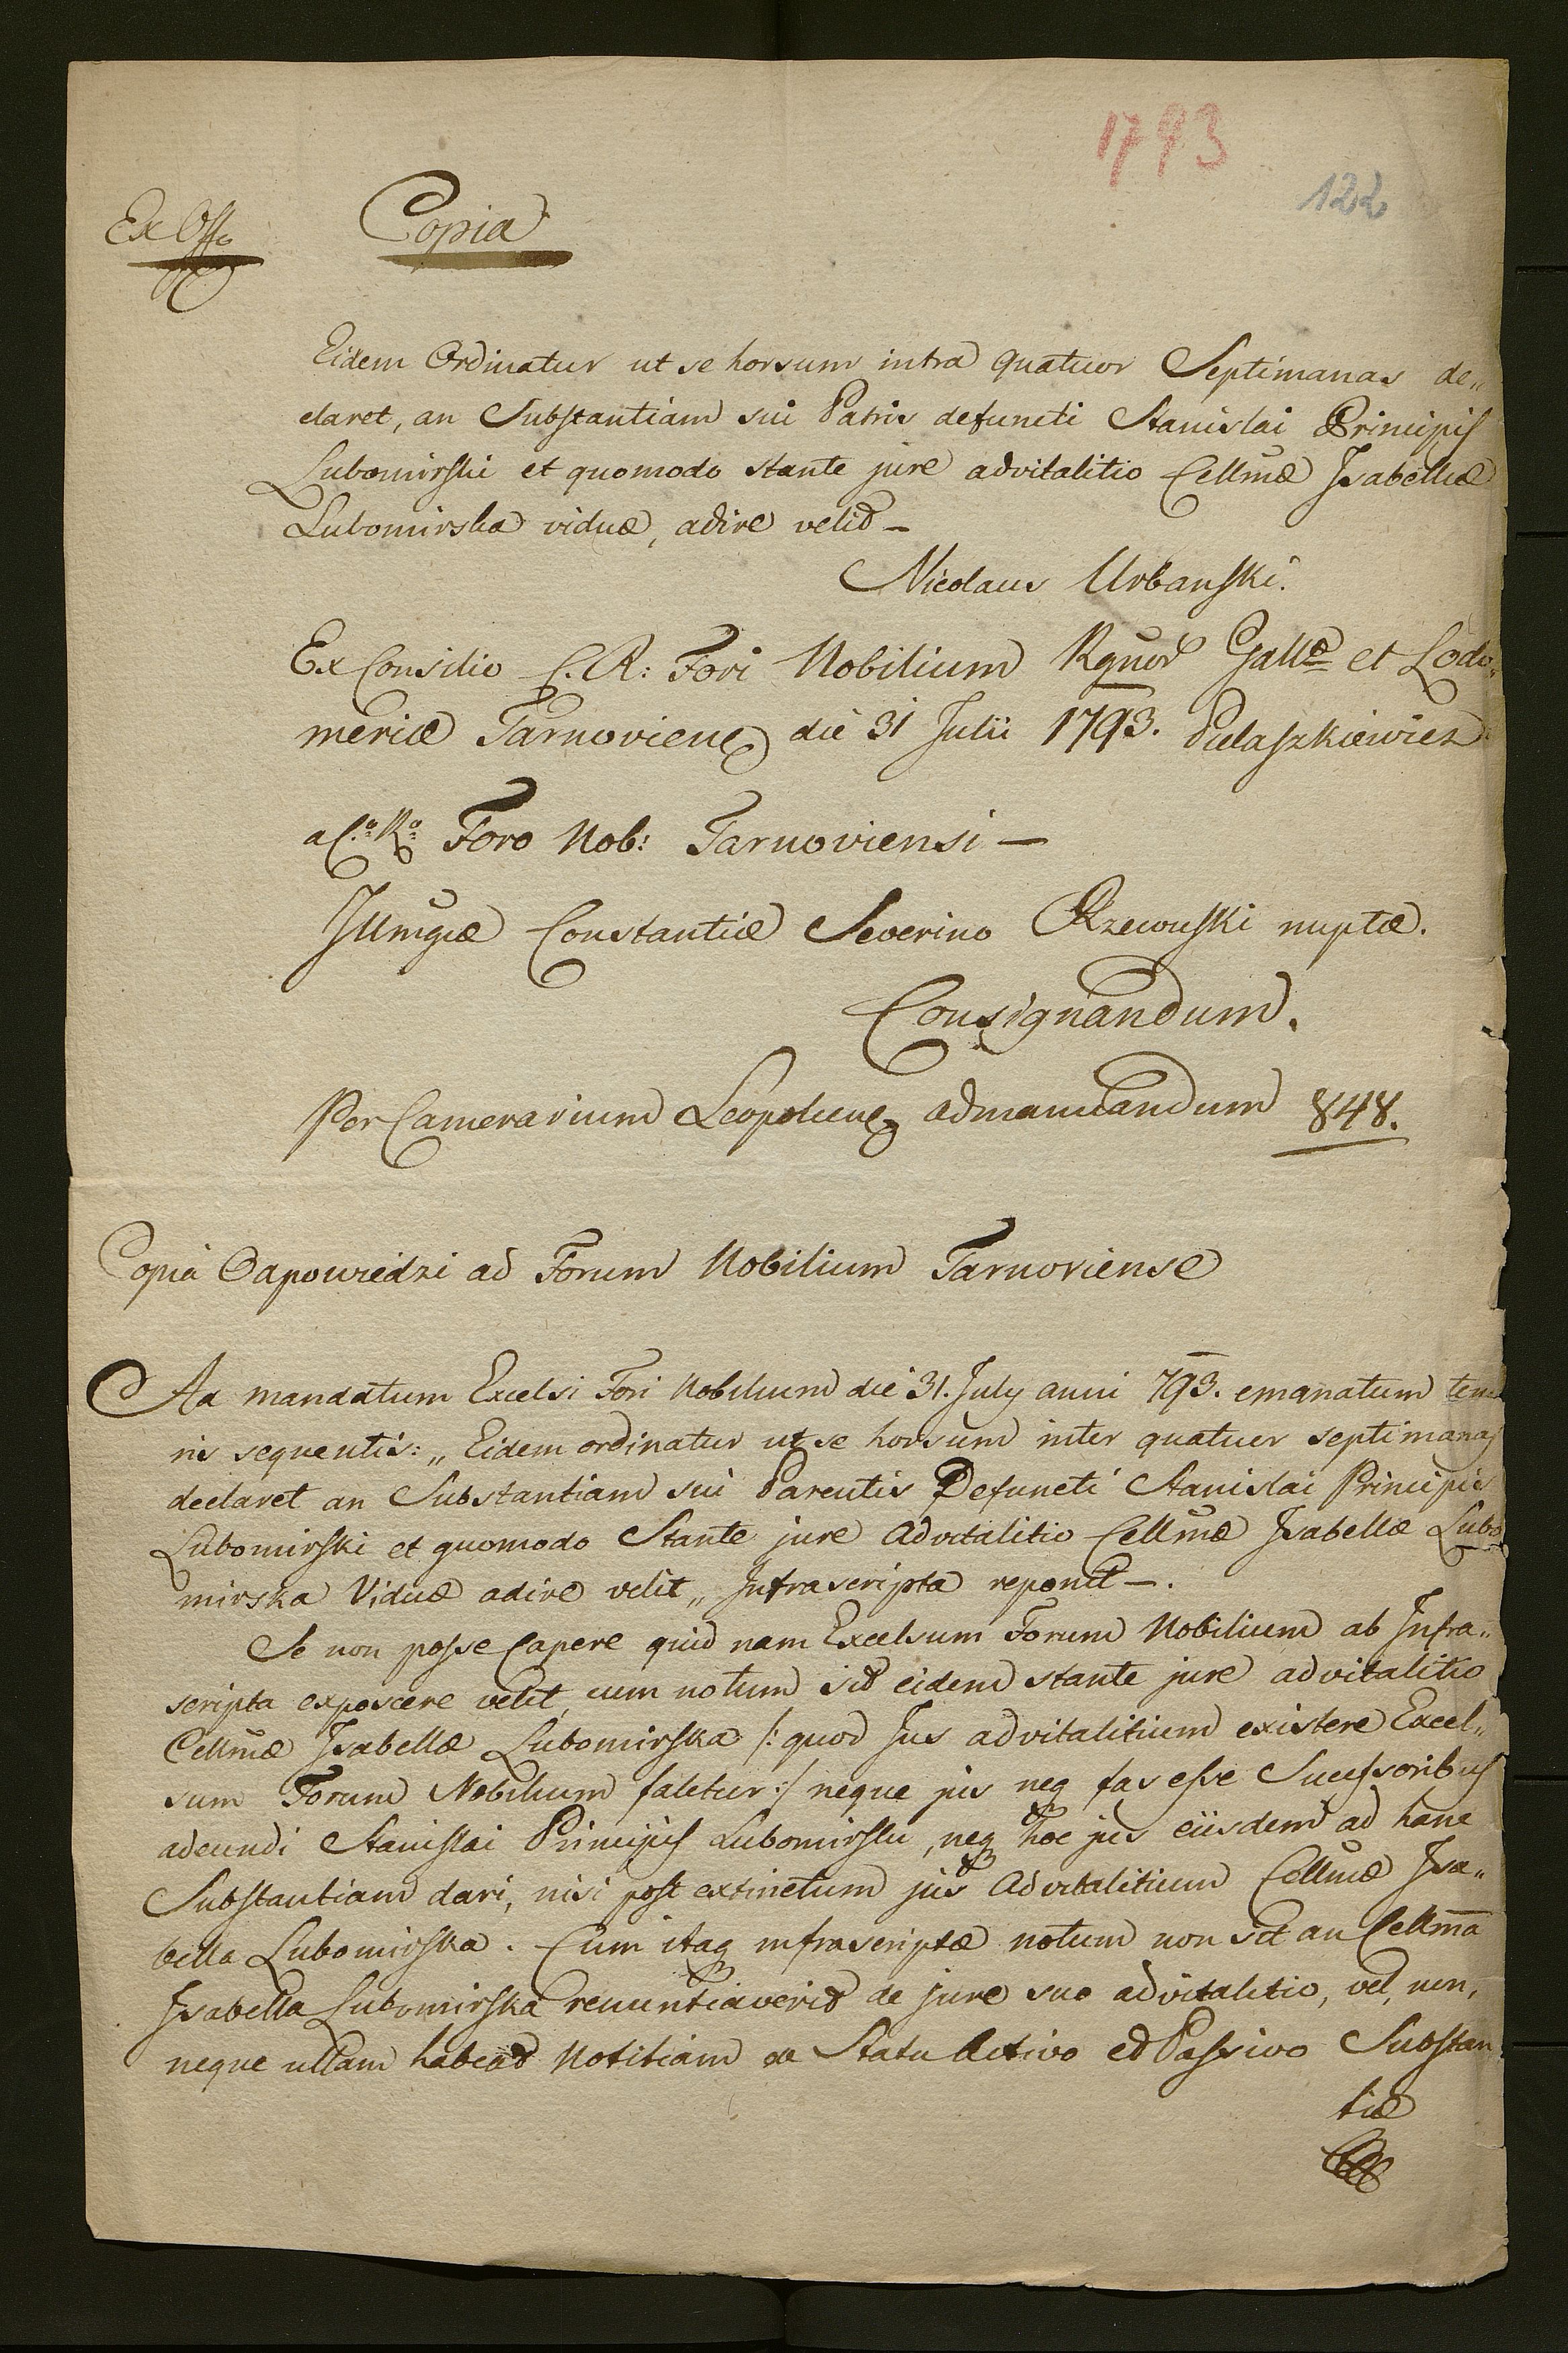 1793
122
Ex Offo
Copia
Eidem Ordinatur ut se horsum intra quatuor Septimanas de„
claret, an Substantiam sui Patris defuncti Stanislai Principis
Lubomirski et quomodo stante jure advitalitio Cellmæ Isabellæ
Lubomirska viduæ, adire velit –
Nicolaus Urbanski.
Ex Consilio C. R: Fori Nobilium Rgnor Gallæ et Lodo„
meriæ Tarnovien die 31 Julii 1793. Pielaszkiewicz
a C.º R.º Foro Nob: Tarnoviensi –
Illmæ Constantiæ Severino Rzewuski nuptæ.
Consignandum.
Per Camerarium Leopolien admanuandum 848.
Copia Odpowiedzi ad Forum Nobilium Tarnoviense
Ad mandatum Excelsi Fori Nobilium die 31. July anni 793. emanatum teno
ris sequentis: „ Eidem ordinatur ut se horsum inter quatuor septimanas
declaret an Substantiam sui Parentis Defuncti Stanislai Principis
Lubomirski et quomodo Stante jure Advitalitio Cellmæ Isabellæ Lubo
mirska Viduæ adire velit „ Infrascripta reponit –.
Se non posse Capere quid nam Excelsum Forum Nobilium ab Infra„
scripta exposcere velit, cum notum sit eidem stante jure advitalitio
Cellmæ Isabellæ Lubomirska /: quod Jus advitalitium existere Excel„
sum Forum Nobilium fatetur :/ neque jus neq fas esse Sucessoribus
adeundi Stanislai Principis Lubomirski, neq hoc jus eiisdem ad hanc
Substantiam dari, nisi post extinctum jus Advitalitium Cellmæ Isa„
bella Lubomirska. Cum itaq infrascriptæ notum non sit an Cellma
Isabella Lubomirska renuntiaverit de jure suo advitalitio, vel, non,
neque ullam habeat Notitiam de Statu Activo et Passivo Substan
tiæ